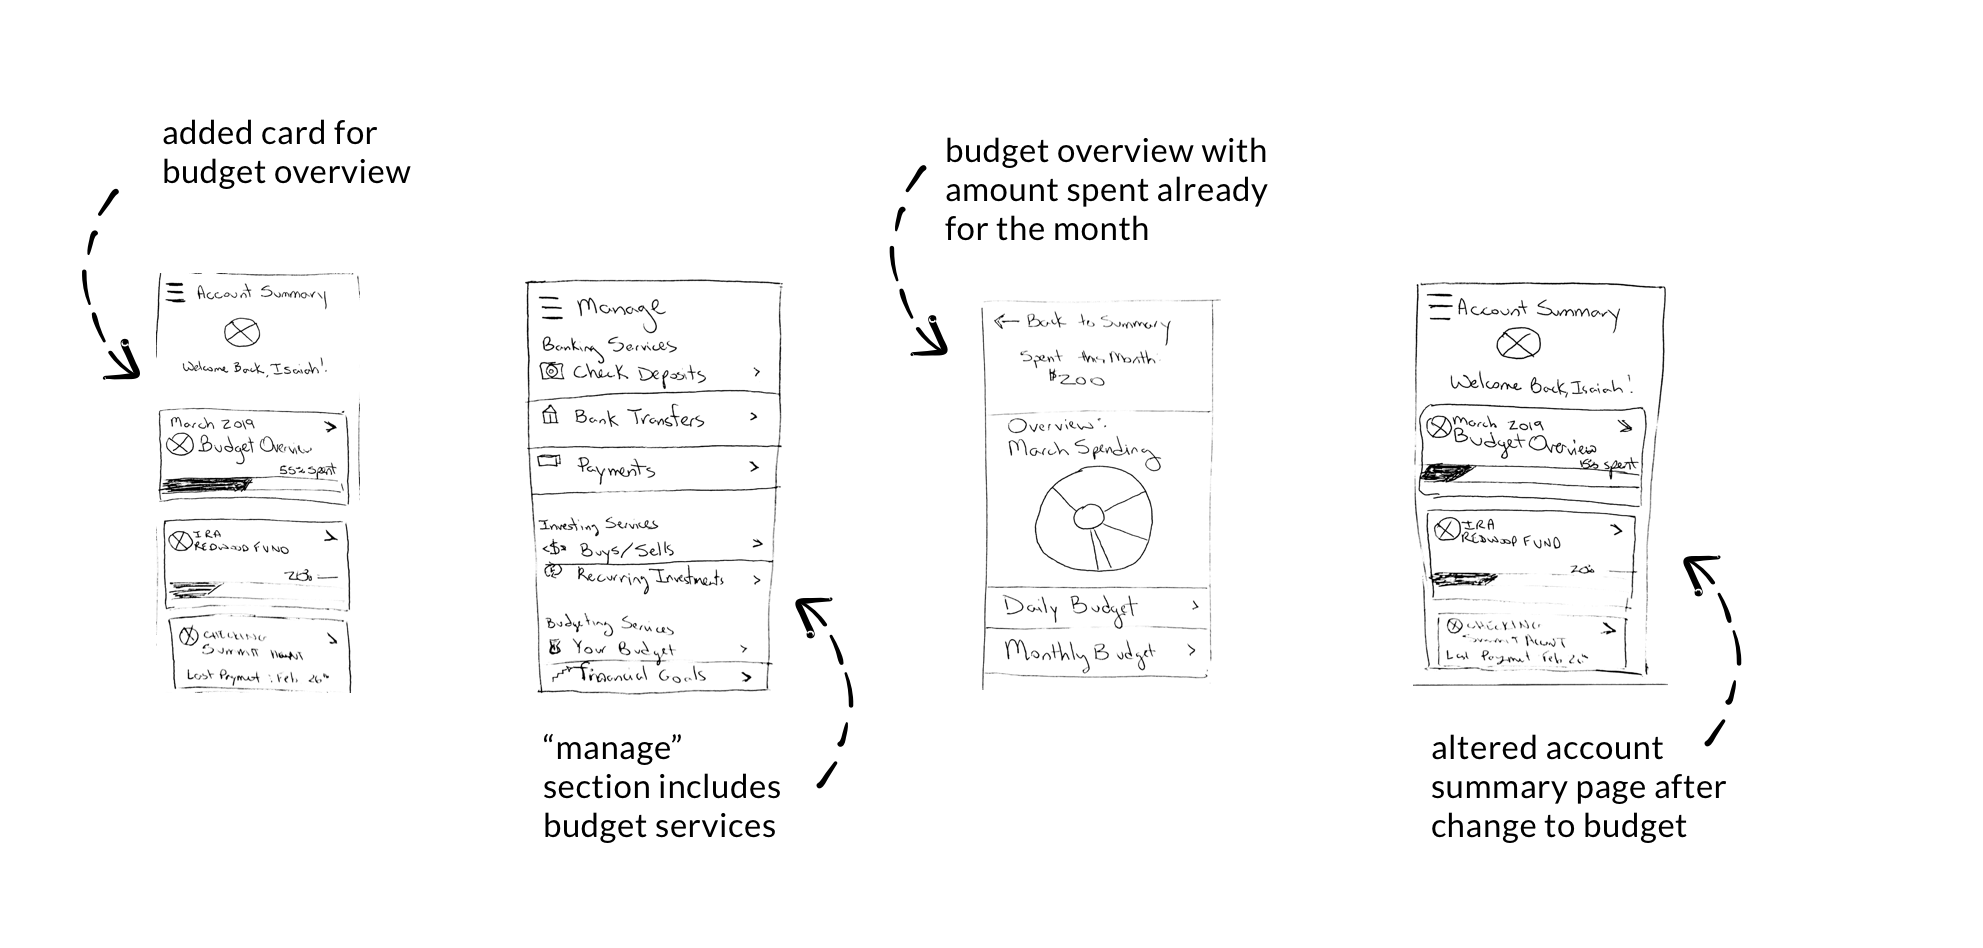 added card for
budget overview
Account Summary
Welcome Back, Isaiah!
March 2019
Budget Overview
55% spent
IRA
REDWOOD FUND
20%
CHECKING
SUMMIT
Last Payment : Feb. 26th
Manage
Banking Services
Check Deposits
Bank Transfers
Payments
Investing Services
Buys/Sells
Recurring Investments
Budgeting Services
Your Budget
Financial Goals
“manage”
section includes
budget services
budget overview with
amount spent already
for the month
Back to Summary
Spent this Month
$200
Overview:
March Spending
Daily Budget
Monthly Budget
Account Summary
Welcome Back, Isaiah!
March 2019
Budget Overview
spent
IRA
REDWOOD FUND
20%
CHECKING
SUMMIT
Last Payment Feb. 26th
altered account
summary page after
change to budget